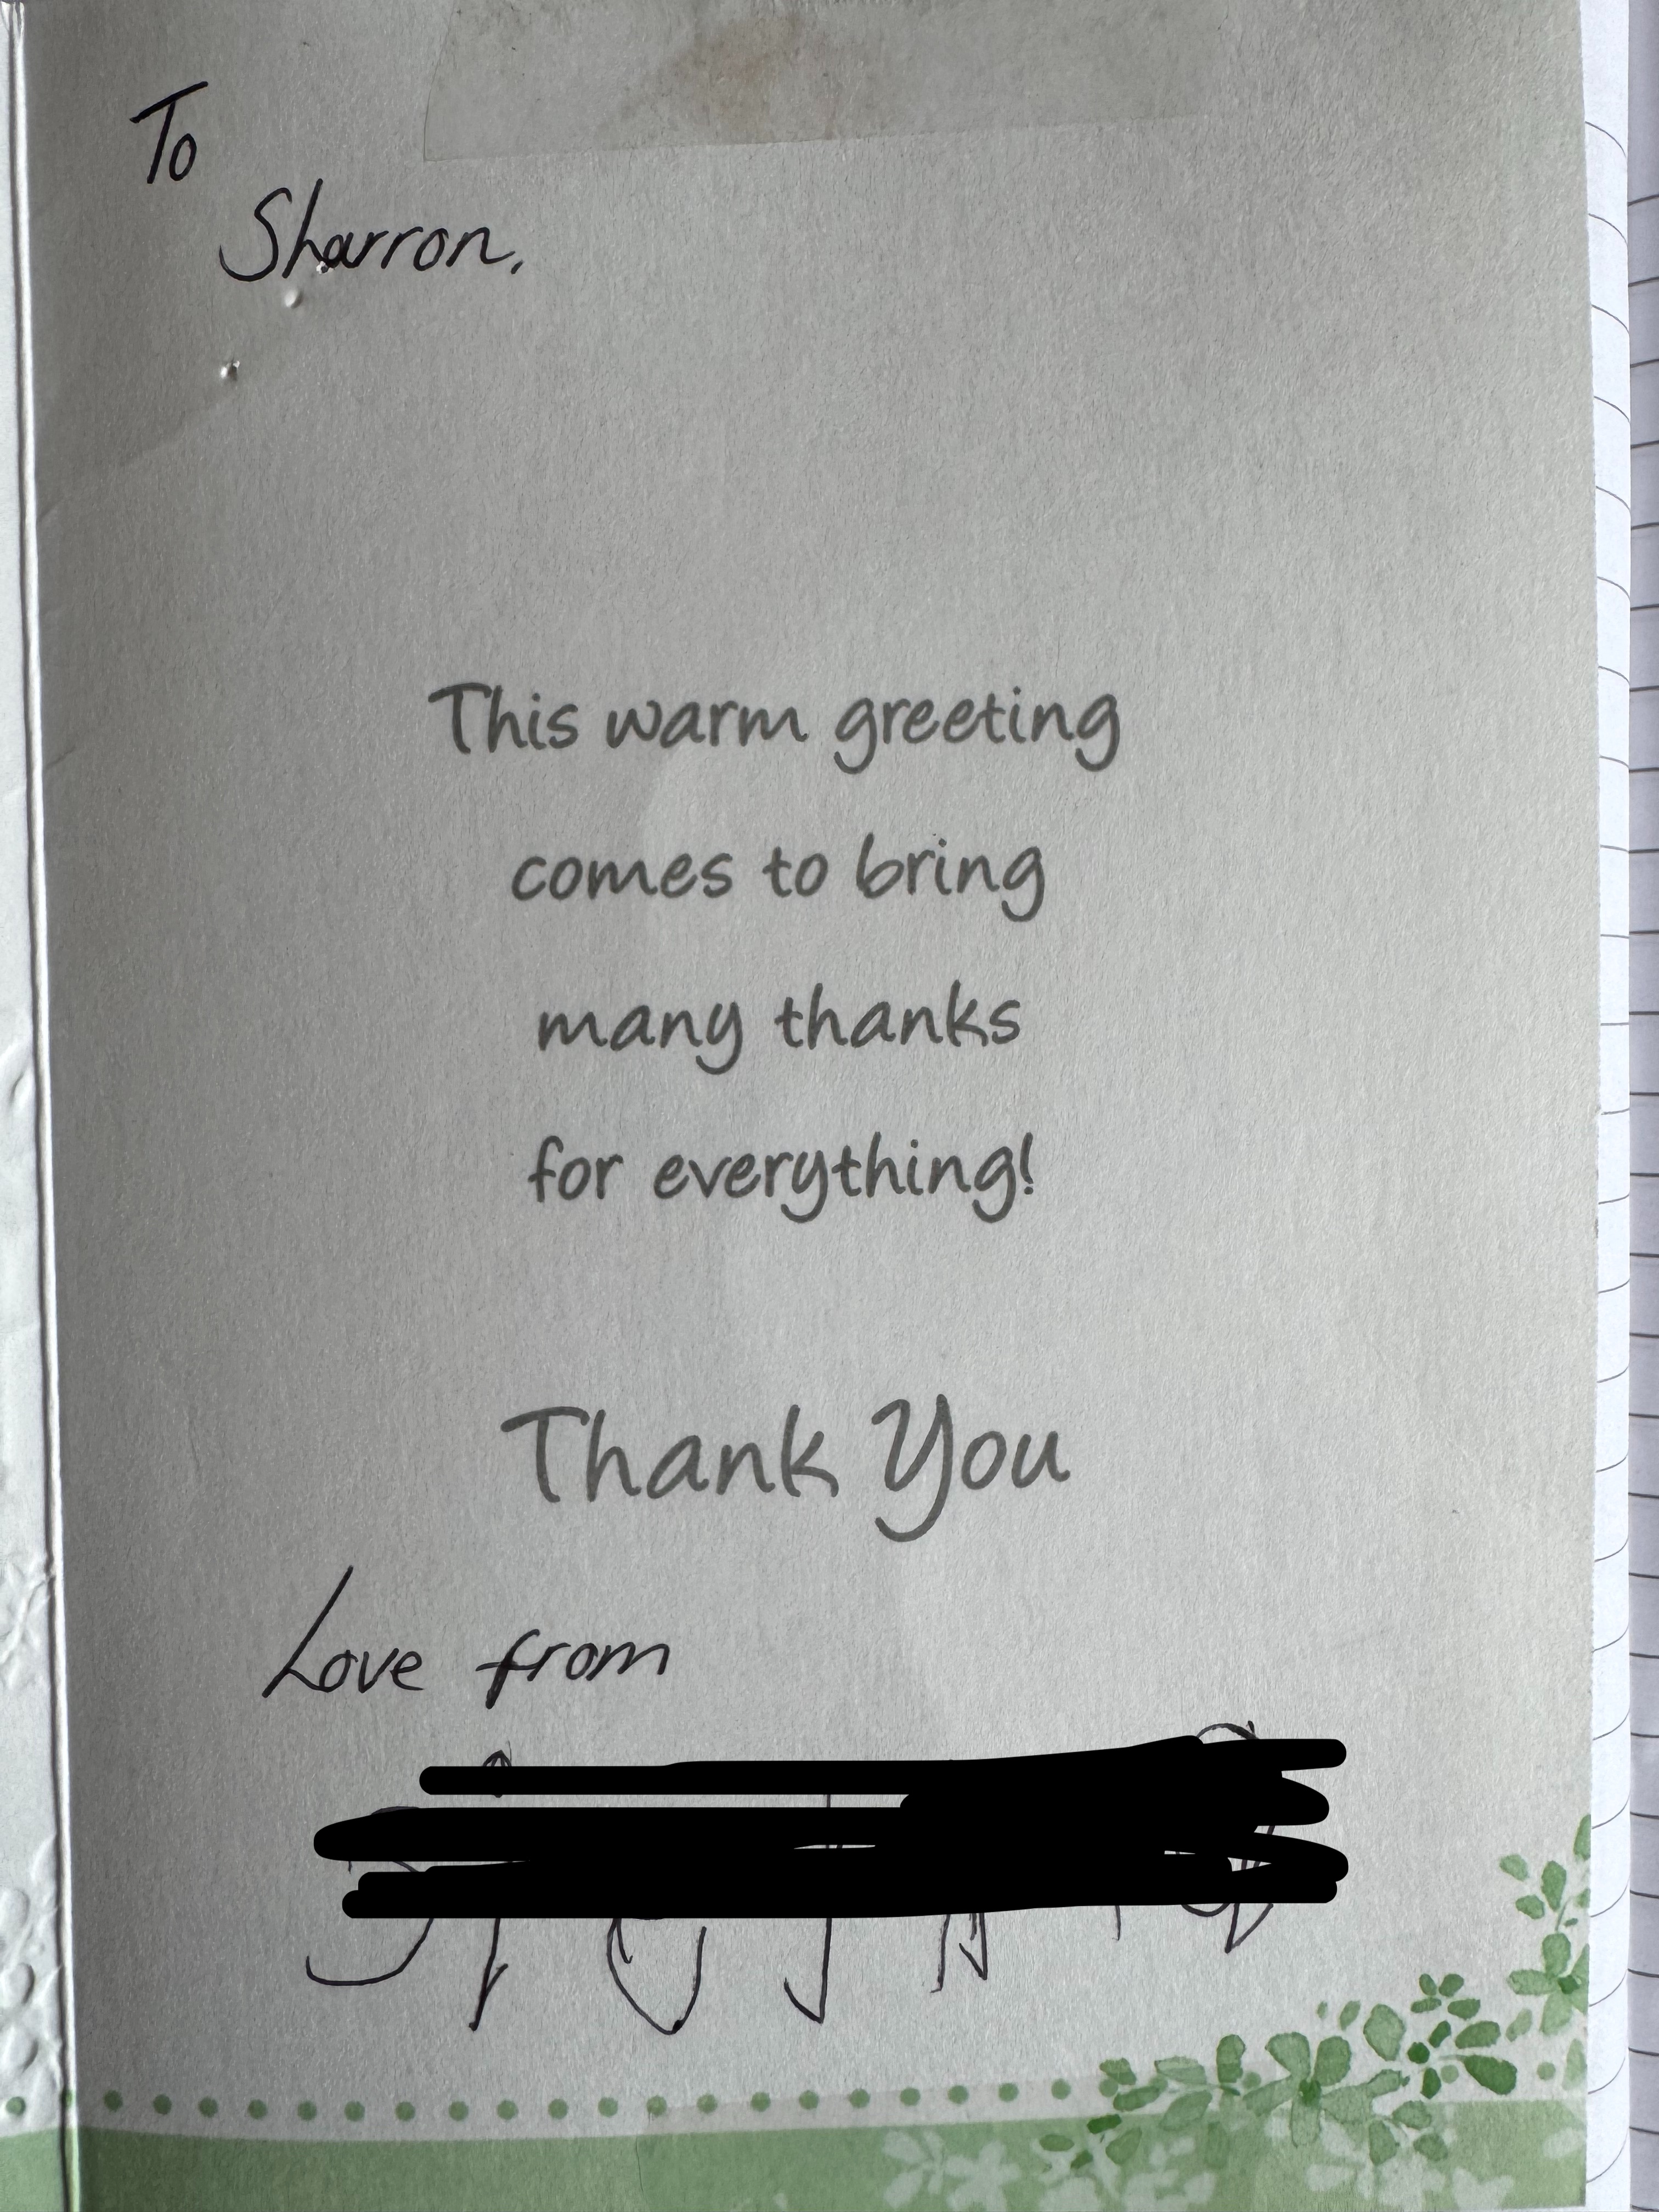 To
Sharron,
This warm greeting
comes to bring
many thanks
for everything!
Thank You
Love from